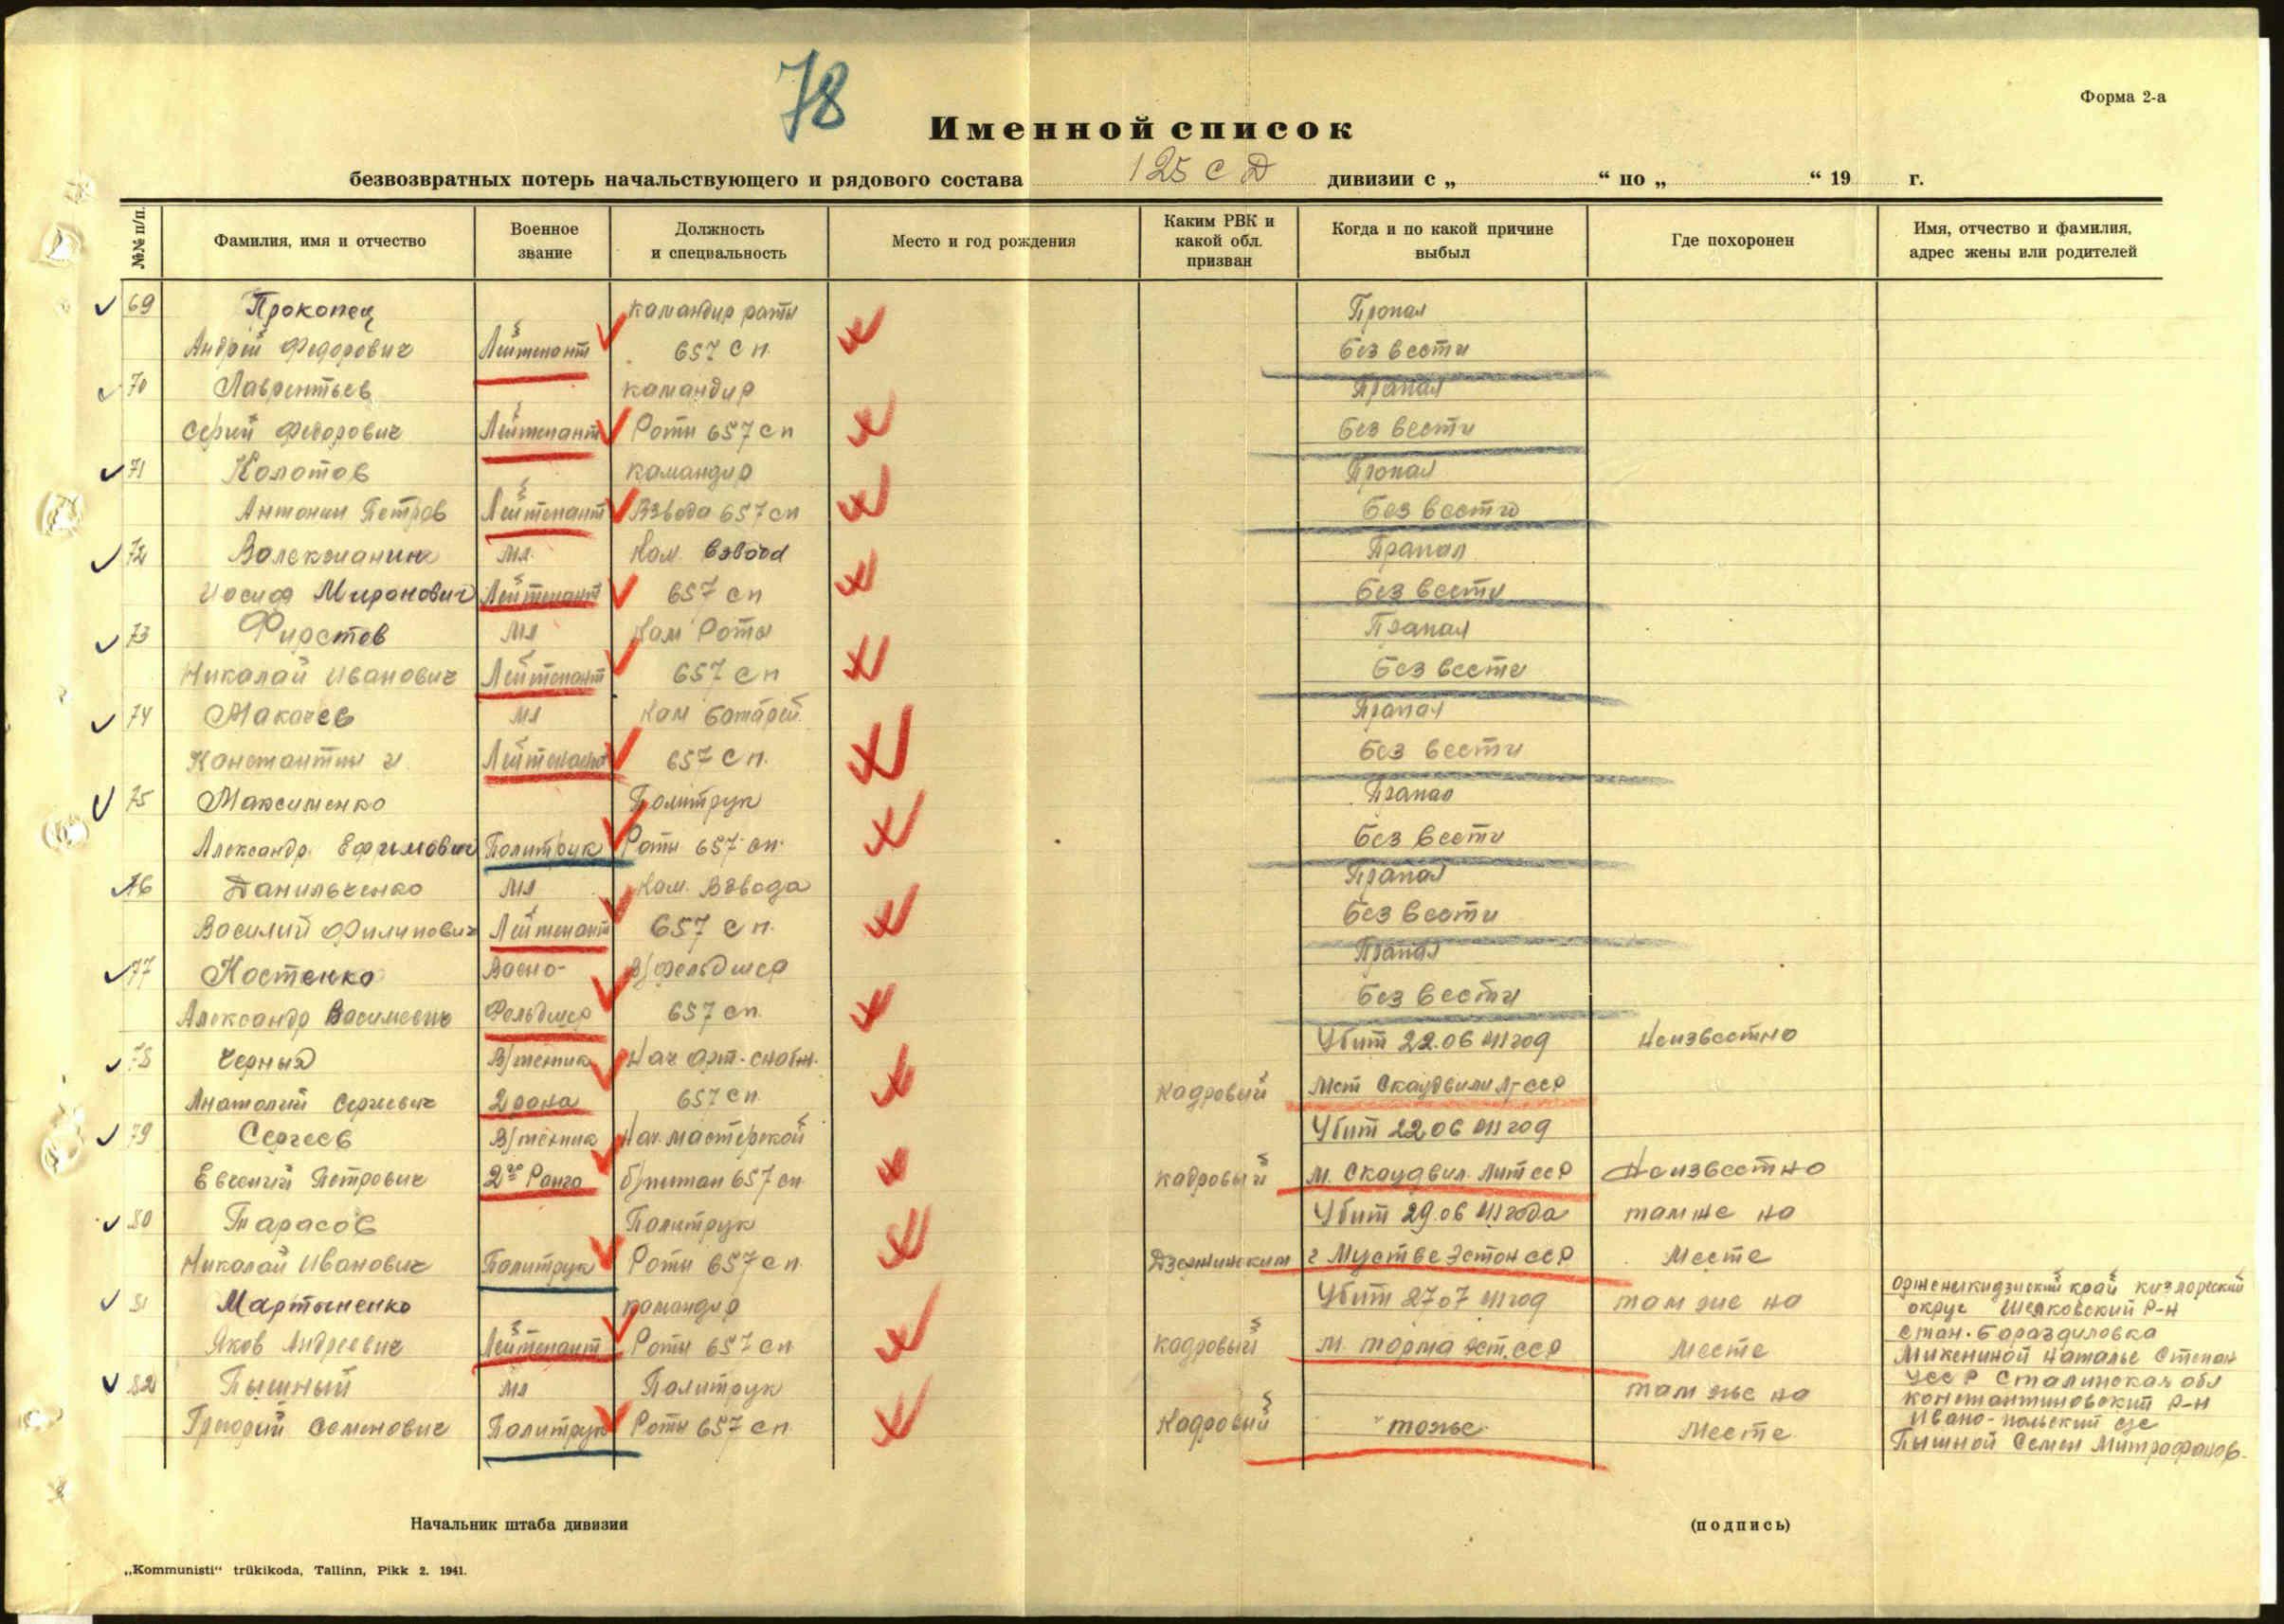 78
Форма 2-а
Именной список
безвозвратных потерь начальствующего и рядового состава 125 с Д дивизии с „ “ по „ “ 19 г.
№№ п/п.
Фамилия, имя и отчество
Военное звание
Должность и специальность
Место и год рождения
Каким РВК и какой обл. призван
Когда и по какой причине выбыл
Где похоронен
Имя, отчество и фамилия, адрес жены или родителей
69 Прокопец командир роты Пропал
Андрей Федорович Лейтенант 657 сп. без вести
70 Лаврентьев командир Пропал
Сергей Федорович Лейтенант Роты 657 сп без вести
71 Колотов командир Пропал
Антонин Петров Лейтенант Взвода 657 сп без вести
72 мл. Ком. взвод Прапал
Иосиф Миронович Лейтенант 657 сп без вести
73 Фирстов мл Ком Роты Прапал
Николай Иванович Лейтенант 657 сп без вести
74 Макачев мл Ком батарей Прапал
Константин И Лейтенант 657 сп. без вести
75 Максименко Политрук Прапал
Александр Ефимович Политрук Роты 657 сп. без вести
76 Данильченко мл Ком. Взвода Прапал
Василий Филипович Лейтенант 657 сп. без вести
77 Костенко Воено- В/фельдшер Прапал
Александр Васильевич Фельдшер 657 сп без вести
78 Черный В/техник Нач арт-снабж. Убит 22.06 41 год Неизвестно
Анатолий Сергеевич 2 ранга 657 сп кадровый мст Скаудвили Л-сср
79 Сергеев В/техник Нач. мастерской Убит 22 06 41 год
Евгений Петрович 2го Ранга 657 сп кадровый м. Скаудвил. Лит сср Неизвестно
80 Тарасов Политрук Убит 29.06 41 года там же на
Николай Иванович Политрук Роты 657 сп Дзержинским г Муствее Эстон сср Месте
81 Мартыненко командир Убит 27 07 41 год там же на
Яков Андреевич Лейтенант Роты 657 сп кадровый м. торма эст. сср Месте
Орженикидзиский край кизлореский
округ Шелковский Р-н
стан. Бораздиловка
Микениной Наталье Степан
82 Пышный мл Политрук там же на
Григорий Семенович Политрук Роты 657 сп Кадровый " тожье Месте
УССР Сталинская обл
константиновский Р-н
Ивано-польский с/с
Пышной Семен Митрофанов.
Начальник штаба дивизии
(подпись)
„Kommunisti“ trükikoda, Tallinn, Pikk 2. 1941.